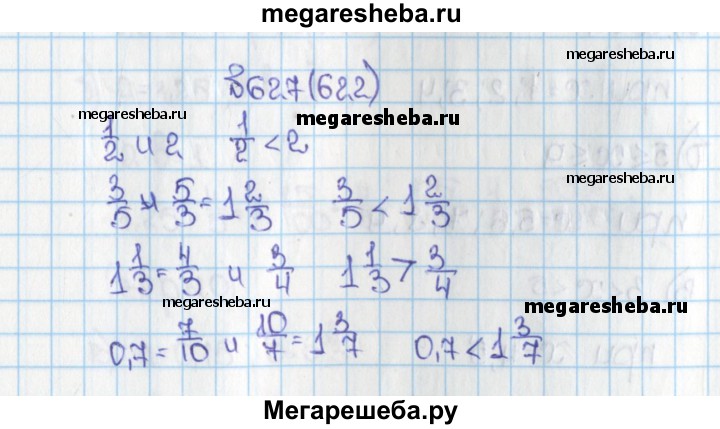 megaresheba.ru
megaresheba.ru
№627(622)
megaresheba.ru
megaresheba.ru
1/2 и 2 1/2 < 2
megaresheba.ru
3/5 и 5/3 = 1 2/3 3/5 < 1 2/3
1 1/3 = 4/3 и 3/4 1 1/3 > 3/4
megaresheba.ru
0,7 = 7/10 и 10/7 = 1 3/7 0,7 < 1 3/7
Мегарешеба.ру